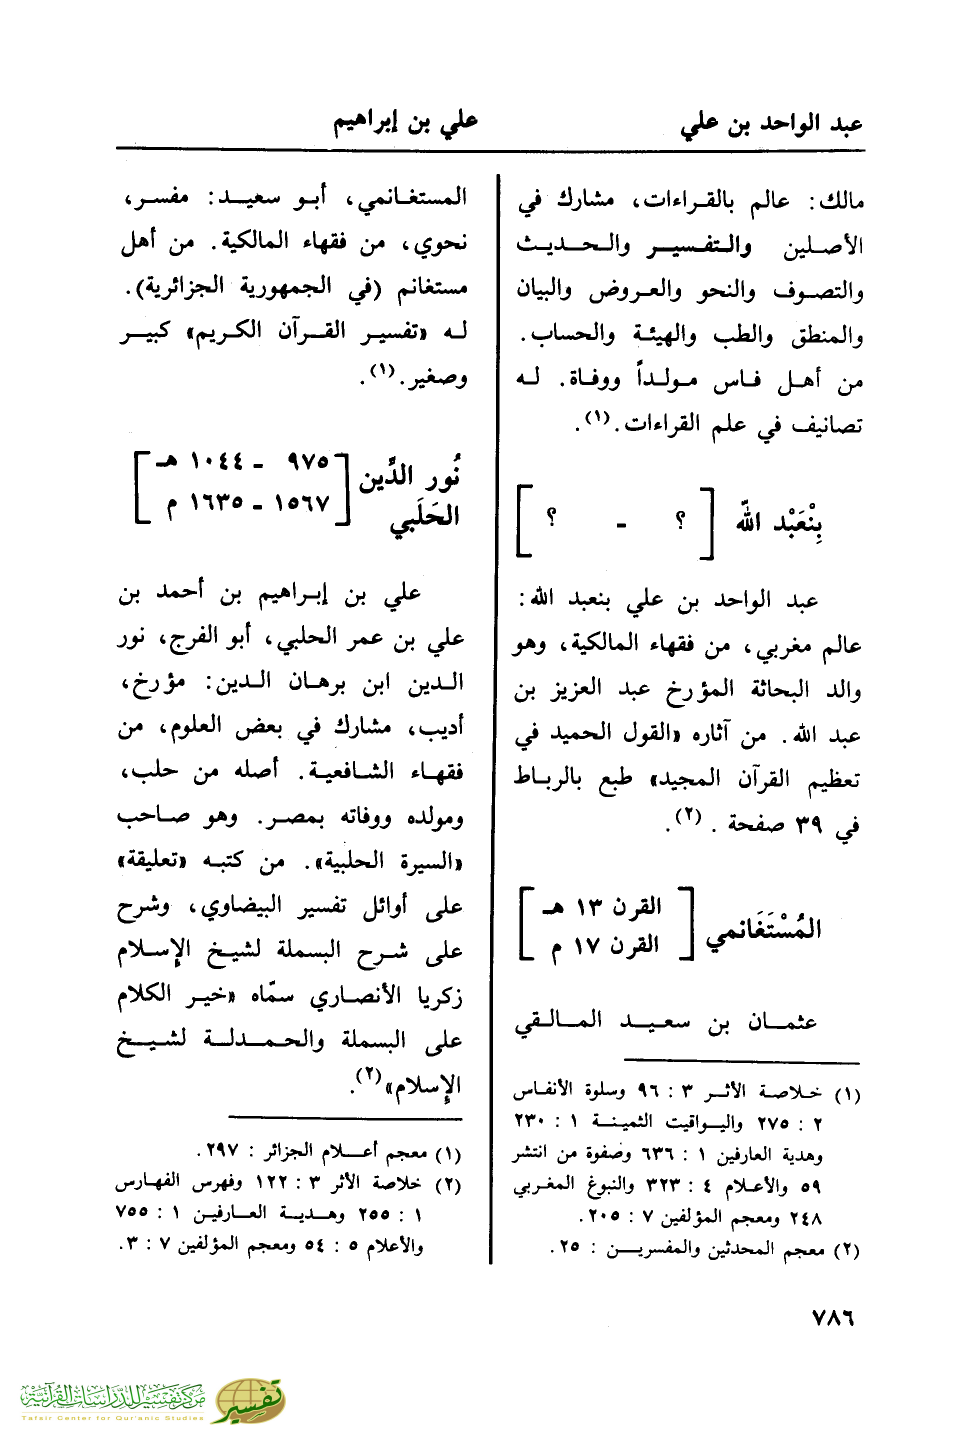 عبد الواحد بن علي
علي بن إبراهيم
مالك: عالم بالقراءات، مشارك في
الأصلين والتفسير والحديث
والتصوف والنحو والعروض والبيان
والمنطق والطب والهيئة والحساب.
من أهل فاس مولداً ووفاة. له
تصانيف في علم القراءات.(١).
بِنْعَبْد الله [ ؟ - ؟ ]
عبد الواحد بن علي بنعبد الله:
عالم مغربي، من فقهاء المالكية، وهو
والد البحاثة المؤرخ عبد العزيز بن
عبد الله. من آثاره «القول الحميد في
تعظيم القرآن المجيد» طبع بالرباط
في ٣٩ صفحة . (٢).
المُسْتَغَانمي [ القرن ١٣ هـ
القرن ١٧ م ]
عثمان بن سعيد المالقي
(١) خلاصة الأثر ٣ : ٩٦ وسلوة الأنفاس
٢ : ٢٧٥ واليواقيت الثمينة ١ : ٢٣٠
وهدية العارفين ١ : ٦٣٦ وصفوة من انتشر
٥٩ والأعلام ٤ : ٣٢٣ والنبوغ المغربي
٢٤٨ ومعجم المؤلفين ٧ : ٢٠٥.
(٢) معجم المحدثين والمفسرين : ٢٥.
المستغانمي، أبو سعيد: مفسر،
نحوي، من فقهاء المالكية. من أهل
مستغانم (في الجمهورية الجزائرية).
له «تفسير القرآن الكريم» كبير
وصغير.(١).
نُور الدِّين [ ٩٧٥ - ١٠٤٤ هـ
الحَلَبي ١٥٦٧ - ١٦٣٥ م ]
علي بن إبراهيم بن أحمد بن
علي بن عمر الحلبي، أبو الفرج، نور
الدين ابن برهان الدين: مؤرخ،
أديب، مشارك في بعض العلوم، من
فقهاء الشافعية. أصله من حلب،
ومولده ووفاته بمصر. وهو صاحب
«السيرة الحلبية». من كتبه «تعليقة»
على أوائل تفسير البيضاوي، وشرح
على شرح البسملة لشيخ الإسلام
زكريا الأنصاري سمّاه «خير الكلام
على البسملة والحمدلة لشيخ
الإسلام»(٢).
(١) معجم أعلام الجزائر : ٢٩٧.
(٢) خلاصة الأثر ٣ : ١٢٢ وفهرس الفهارس
١ : ٢٥٥ وهدية العارفين ١ : ٧٥٥
والأعلام ٥ : ٥٤ ومعجم المؤلفين ٧ : ٣.
٧٨٦
تفسير
مركز تفسير للدراسات القرآنية
Tafsir Center for Qur'anic Studies